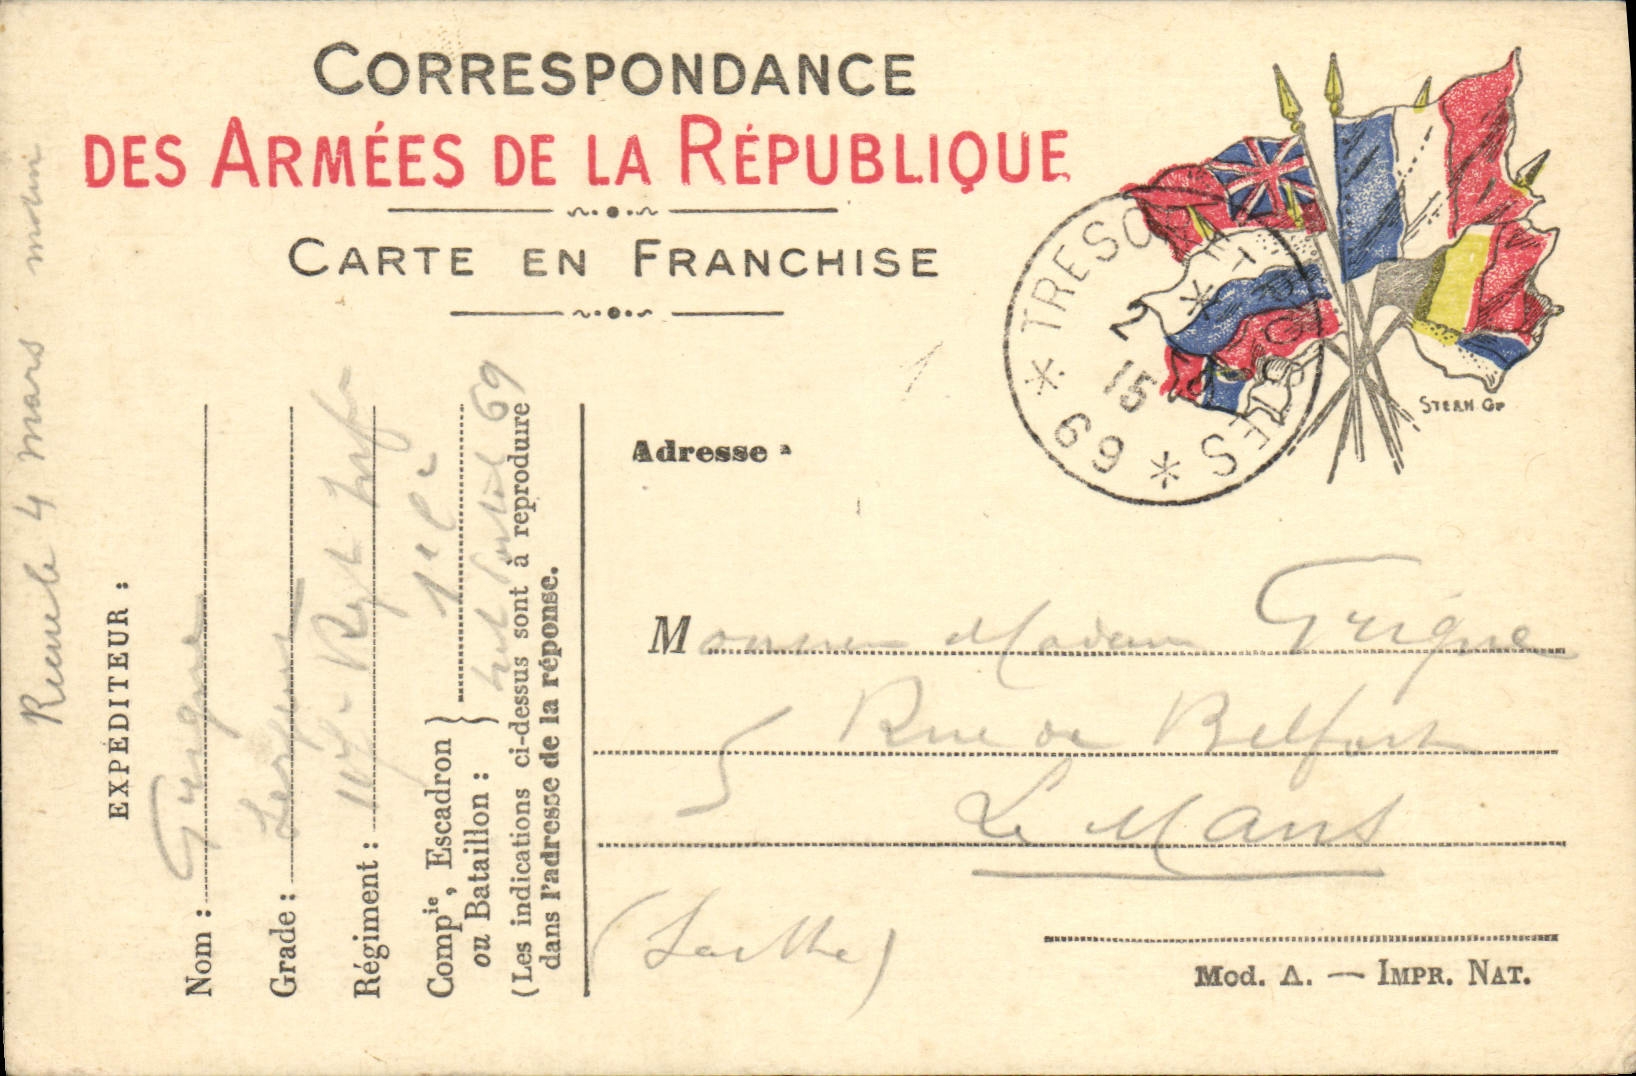 CORRESPONDANCE
DES ARMÉES DE LA RÉPUBLIQUE
CARTE EN FRANCHISE
TRESOR ET POSTES
2
15
69
STERN Gr
Reçu le 4 mars matin
EXPÉDITEUR :
Nom : Grigne
Grade : Sergent
Régiment : Regt Inf
Compie, Escadron } 1e Cie
ou Bataillon : 69
(Les indications ci-dessus sont à reproduire
dans l'adresse de la réponse.
Adresse :
Monsieur Madame Grigne
5 Rue de Belfort
Le Mans
(Sarthe)
Mod. A. — IMPR. NAT.